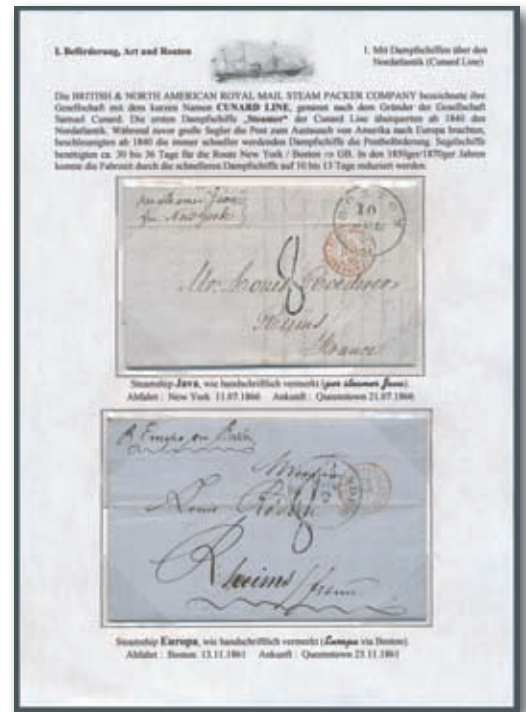 I. Beförderung, Art und Routen
1. Mit Dampfschiffen über den
Nordatlantik (Cunard Line)
Die BRITISH & NORTH AMERICAN ROYAL MAIL STEAM PACKER COMPANY bezeichnete ihre
Gesellschaft mit dem kurzen Namen CUNARD LINE, genannt nach dem Gründer der Gesellschaft
Samuel Cunard. Die ersten Dampfschiffe „Steamer“ der Cunard Line überquerten ab 1840 den
Nordatlantik. Während zuvor große Segler die Post zum Austausch von Amerika nach Europa brachten,
beschleunigten ab 1840 die immer schneller werdenden Dampfschiffe die Postbeförderung. Segelschiffe
benötigten ca. 30 bis 36 Tage für die Route New York / Boston ⇨ GB. In den 1850ger/1870ger Jahren
konnte die Fahrzeit durch die schnelleren Dampfschiffe auf 10 bis 13 Tage reduziert werden.
per steamer Java
from New York
BOSTON
10
8
Mr. Louis Roederer
Reims
France
Steamship Java, wie handschriftlich vermerkt (per steamer Java).
Abfahrt : New York 11.07.1866 Ankunft : Queenstown 21.07.1866
p. Europa via Boston
Messrs
Louis
8
Rheims
Steamship Europa, wie handschriftlich vermerkt (Europa via Boston).
Abfahrt : Boston 13.11.1861 Ankunft : Queenstown 23.11.1861